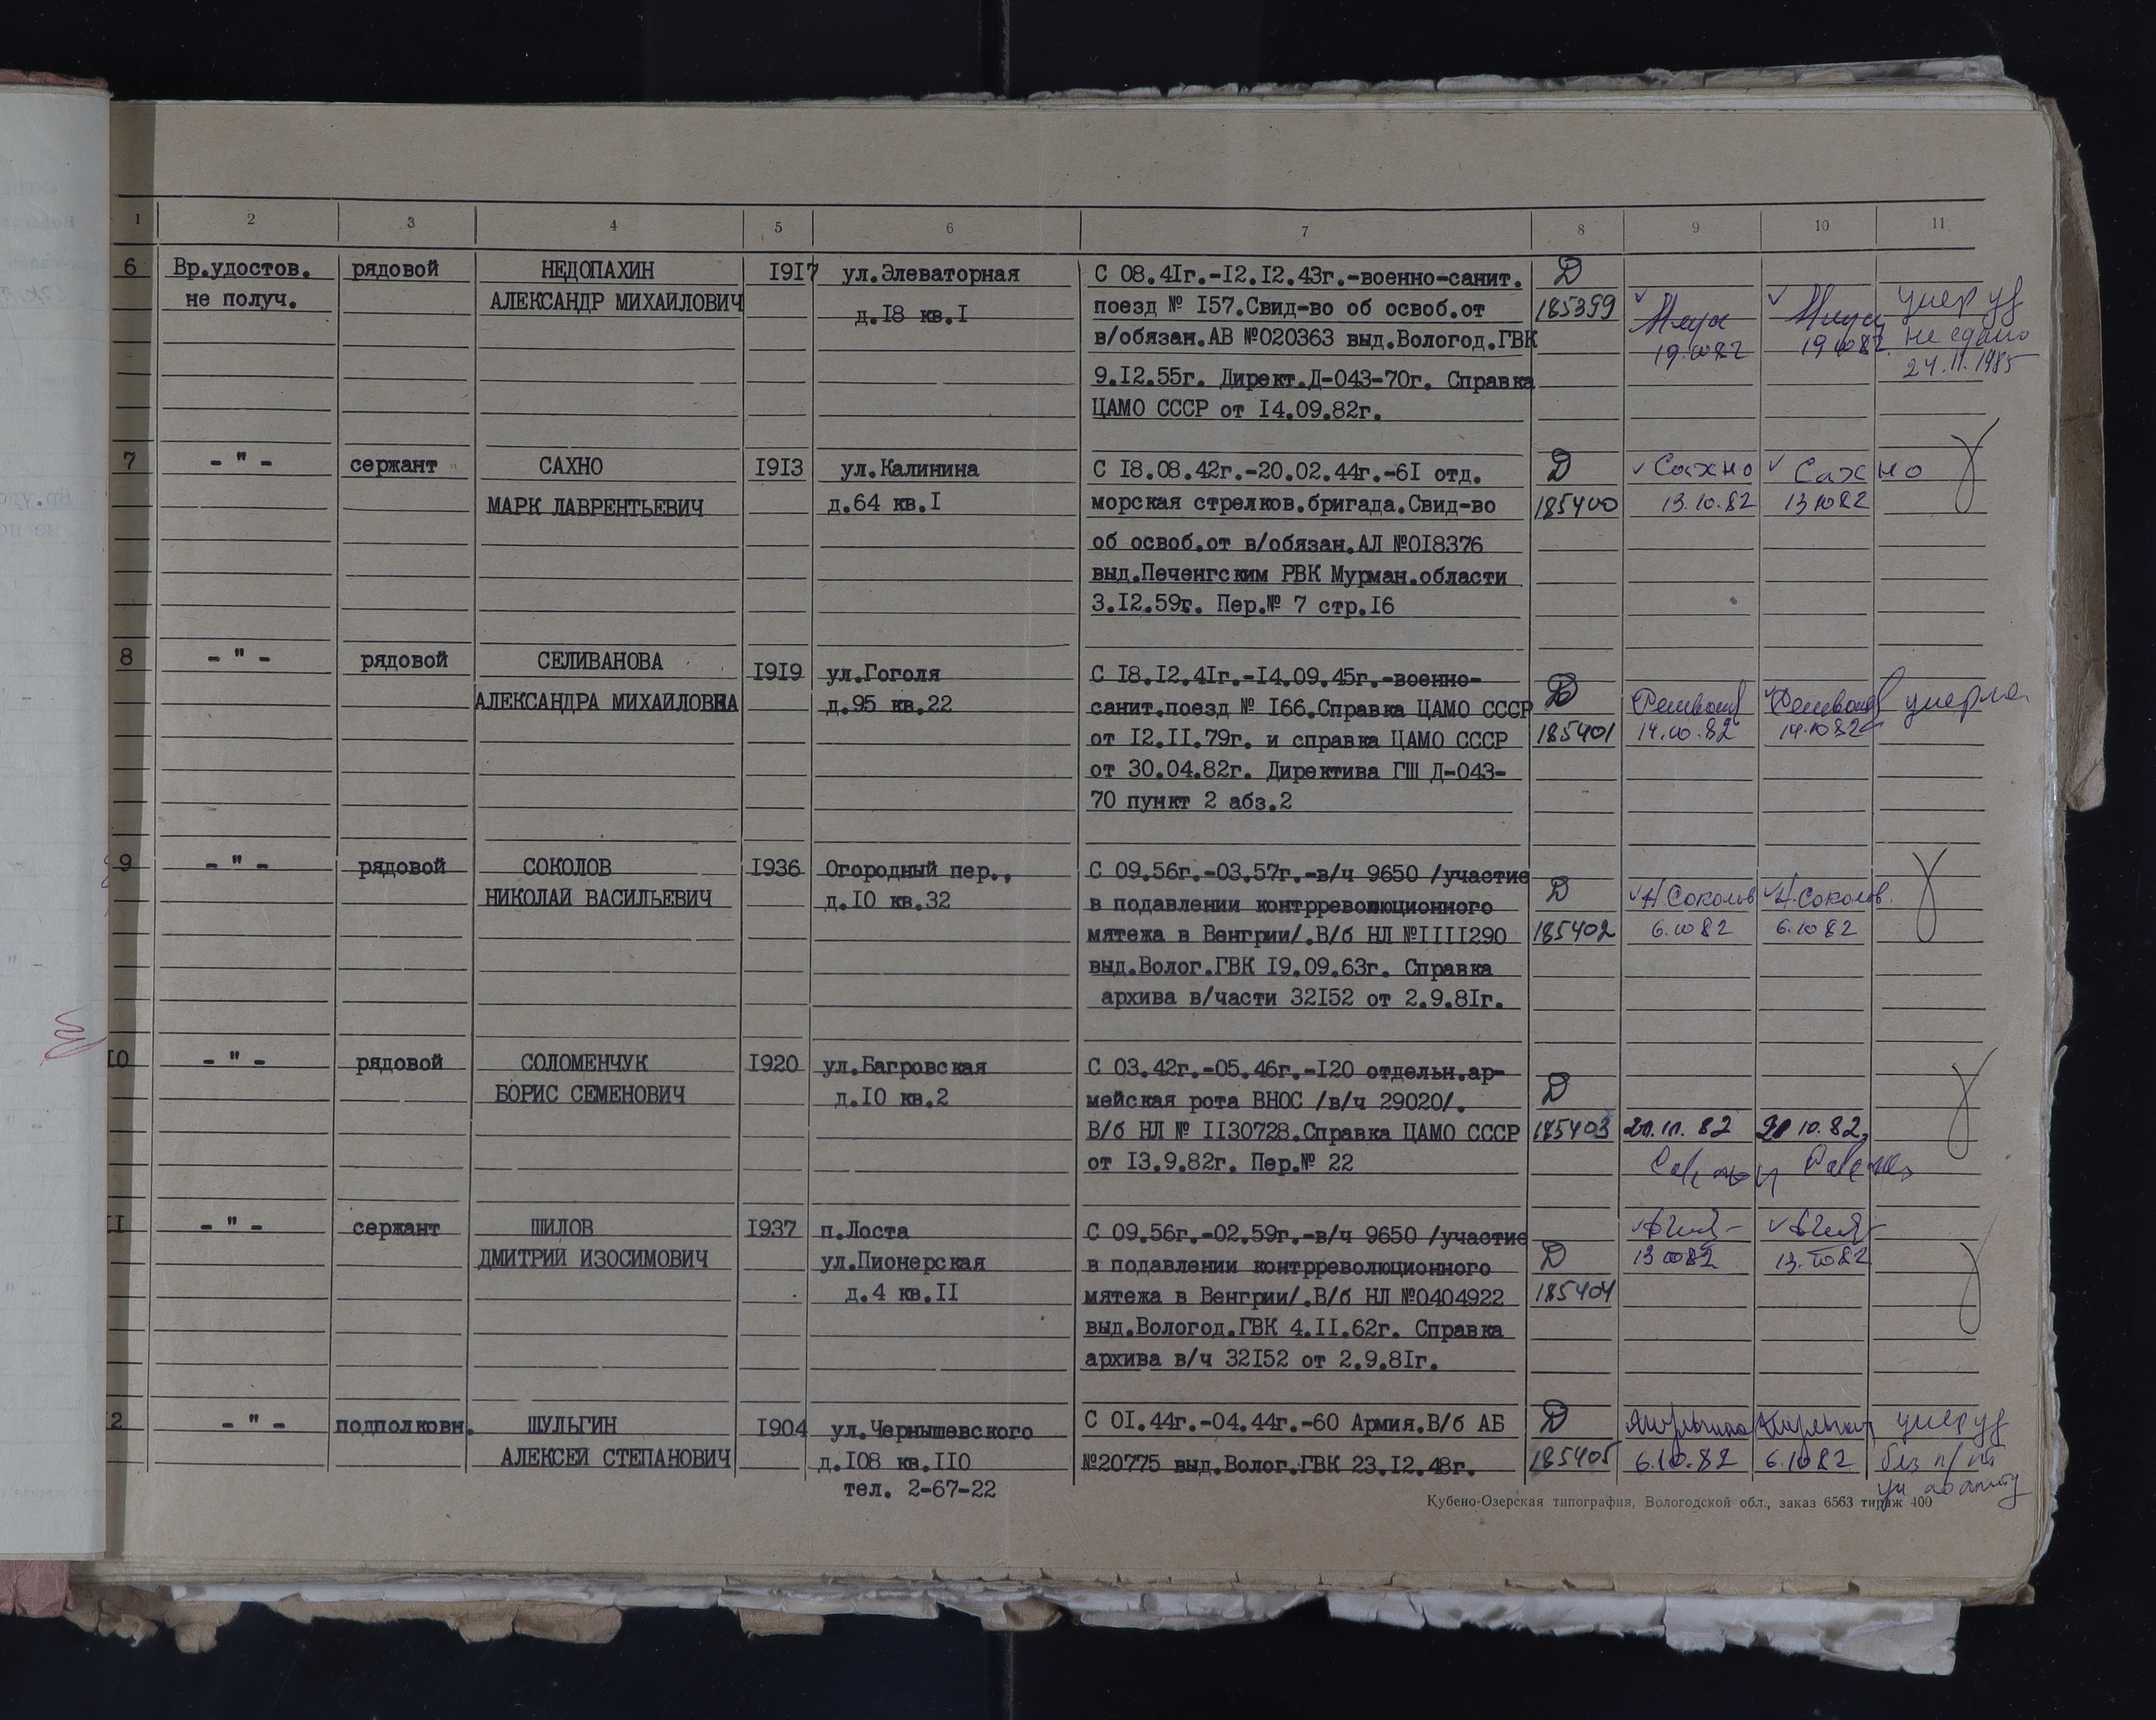 1 2 3 4 5 6 7 8 9 10 11
6 Вр.удостов. рядовой НЕДОПАХИН I9I7 ул.Элеваторная С 08.4Iг.-I2.I2.43г.-военно-санит. Д
не получ. АЛЕКСАНДР МИХАИЛОВИЧ д.I8 кв.I поезд № I57.Свид-во об освоб.от 185399 умер уд
в/обязан.АВ №020363 выд.Вологод.ГВК 19.10.82 19.10.82 не сдано
9.I2.55г. Директ.Д-043-70г. Справка 24.11.1985
ЦАМО СССР от I4.09.82г.
7 - " - сержант САХНО I9I3 ул.Калинина С I8.08.42г.-20.02.44г.-6I отд. Д Сахно Сахно
МАРК ЛАВРЕНТЬЕВИЧ д.64 кв.I морская стрелков.бригада.Свид-во 185400 13.10.82 13 10 82
об освоб.от в/обязан.АЛ №0I8376
выд.Печенгским РВК Мурман.области
3.I2.59г. Пер.№ 7 стр.I6
8 - " - рядовой СЕЛИВАНОВА I9I9 ул.Гоголя С I8.I2.4Iг.-I4.09.45г.-военно- Д
АЛЕКСАНДРА МИХАИЛОВНА д.95 кв.22 санит.поезд № I66.Справка ЦАМО СССР умерла
от I2.II.79г. и справка ЦАМО СССР 185401 14.10.82 14.10.82
от 30.04.82г. Директива ГШ Д-043-
70 пункт 2 абз.2
9 - " - рядовой СОКОЛОВ I936 Огородный пер., С 09.56г.-03.57г.-в/ч 9650 /участие Д
НИКОЛАИ ВАСИЛЬЕВИЧ д.I0 кв.32 в подавлении контрреволюционного Н.Соколов Н.Соколов.
мятежа в Венгрии/.В/б НЛ №IIII290 185402 6.10 82 6.10 82
выд.Волог.ГВК I9.09.63г. Справка
архива в/части 32I52 от 2.9.8Iг.
I0 - " - рядовой СОЛОМЕНЧУК I920 ул.Багровская С 03.42г.-05.46г.-I20 отдельн.ар- Д
БОРИС СЕМЕНОВИЧ д.I0 кв.2 мейская рота ВНОС /в/ч 29020/.
В/б НЛ № II30728.Справка ЦАМО СССР 185403
от I3.9.82г. Пер.№ 22
II - " - сержант ШИЛОВ I937 п.Лоста С 09.56г.-02.59г.-в/ч 9650 /участие
ДМИТРИИ ИЗОСИМОВИЧ ул.Пионерская в подавлении контрреволюционного Д 13 10 82 13.10 82
д.4 кв.II мятежа в Венгрии/.В/б НЛ №0404922 185404
выд.Вологод.ГВК 4.II.62г. Справка
архива в/ч 32I52 от 2.9.8Iг.
2 - " - подполковн. ШУЛЬГИН I904 ул.Чернышевского С 0I.44г.-04.44г.-60 Армия.В/б АБ Д умер уд
АЛЕКСЕИ СТЕПАНОВИЧ д.I08 кв.II0 №20775 выд.Волог.ГВК 23.I2.48г. 185405 6.10.82 6.10 82 без
тел. 2-67-22
Кубено-Озерская типография, Вологодской обл., заказ 6563 тираж 400